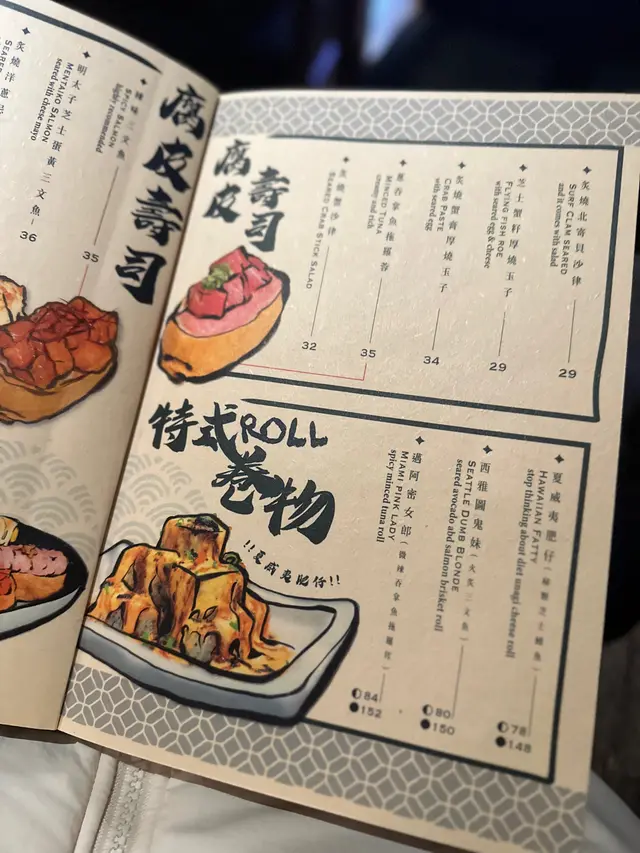 炙燒洋蔥
SEARED
明太子芝士蛋黃三文魚
MENTAIKO SALMON
seared with cheese mayo
36
辣味三文魚
SPICY SALMON
highly recommended
35
腐皮壽司
腐皮壽司
炙燒北寄貝沙律
SURF CLAM SEARED
and it comes with salad
29
芝士蟹籽厚燒玉子
FLYING FISH ROE
with seared egg & cheese
29
炙燒蟹膏厚燒玉子
CRAB PASTE
with seared egg
34
蔥吞拿魚拖羅蓉
MINCED TUNA
creamy and rich
35
炙燒蟹沙律
SEARED CRAB STICK SALAD
32
特式ROLL
卷物
!!夏威夷肥仔!!
夏威夷肥仔(芝士鰻魚)
HAWAIIAN FATTY
stop thinking about diet unagi cheese roll
78
148
西雅圖鬼妹(火炙三文魚)
SEATTLE DUMB BLONDE
seared avocado abd salmon brisket roll
80
150
邁阿密女郎(微辣吞拿魚拖羅蓉)
MIAMI PINK LADY
spicy minced funa roll
84
152